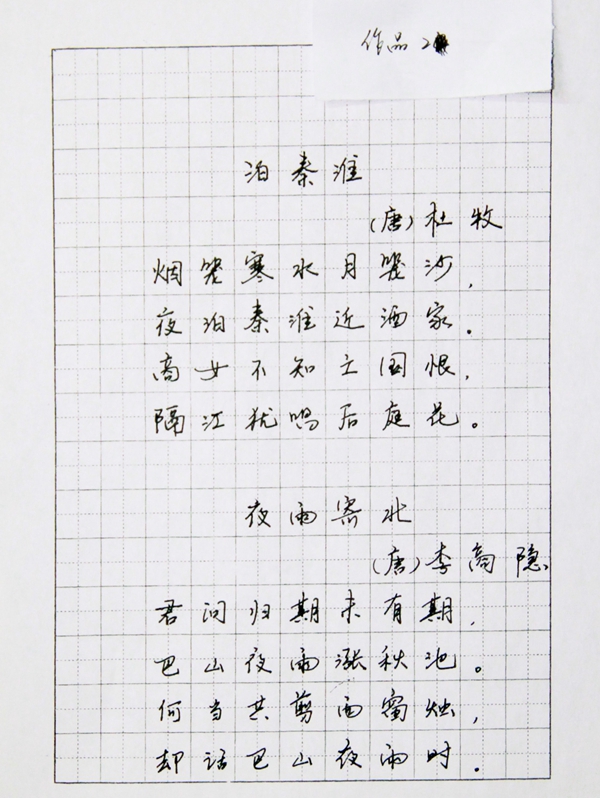 作品2
泊秦淮
(唐)杜牧
烟笼寒水月笼沙,
夜泊秦淮近酒家。
商女不知亡国恨,
隔江犹唱后庭花。
夜雨寄北
(唐)李商隐
君问归期未有期,
巴山夜雨涨秋池。
何当共剪西窗烛,
却话巴山夜雨时。